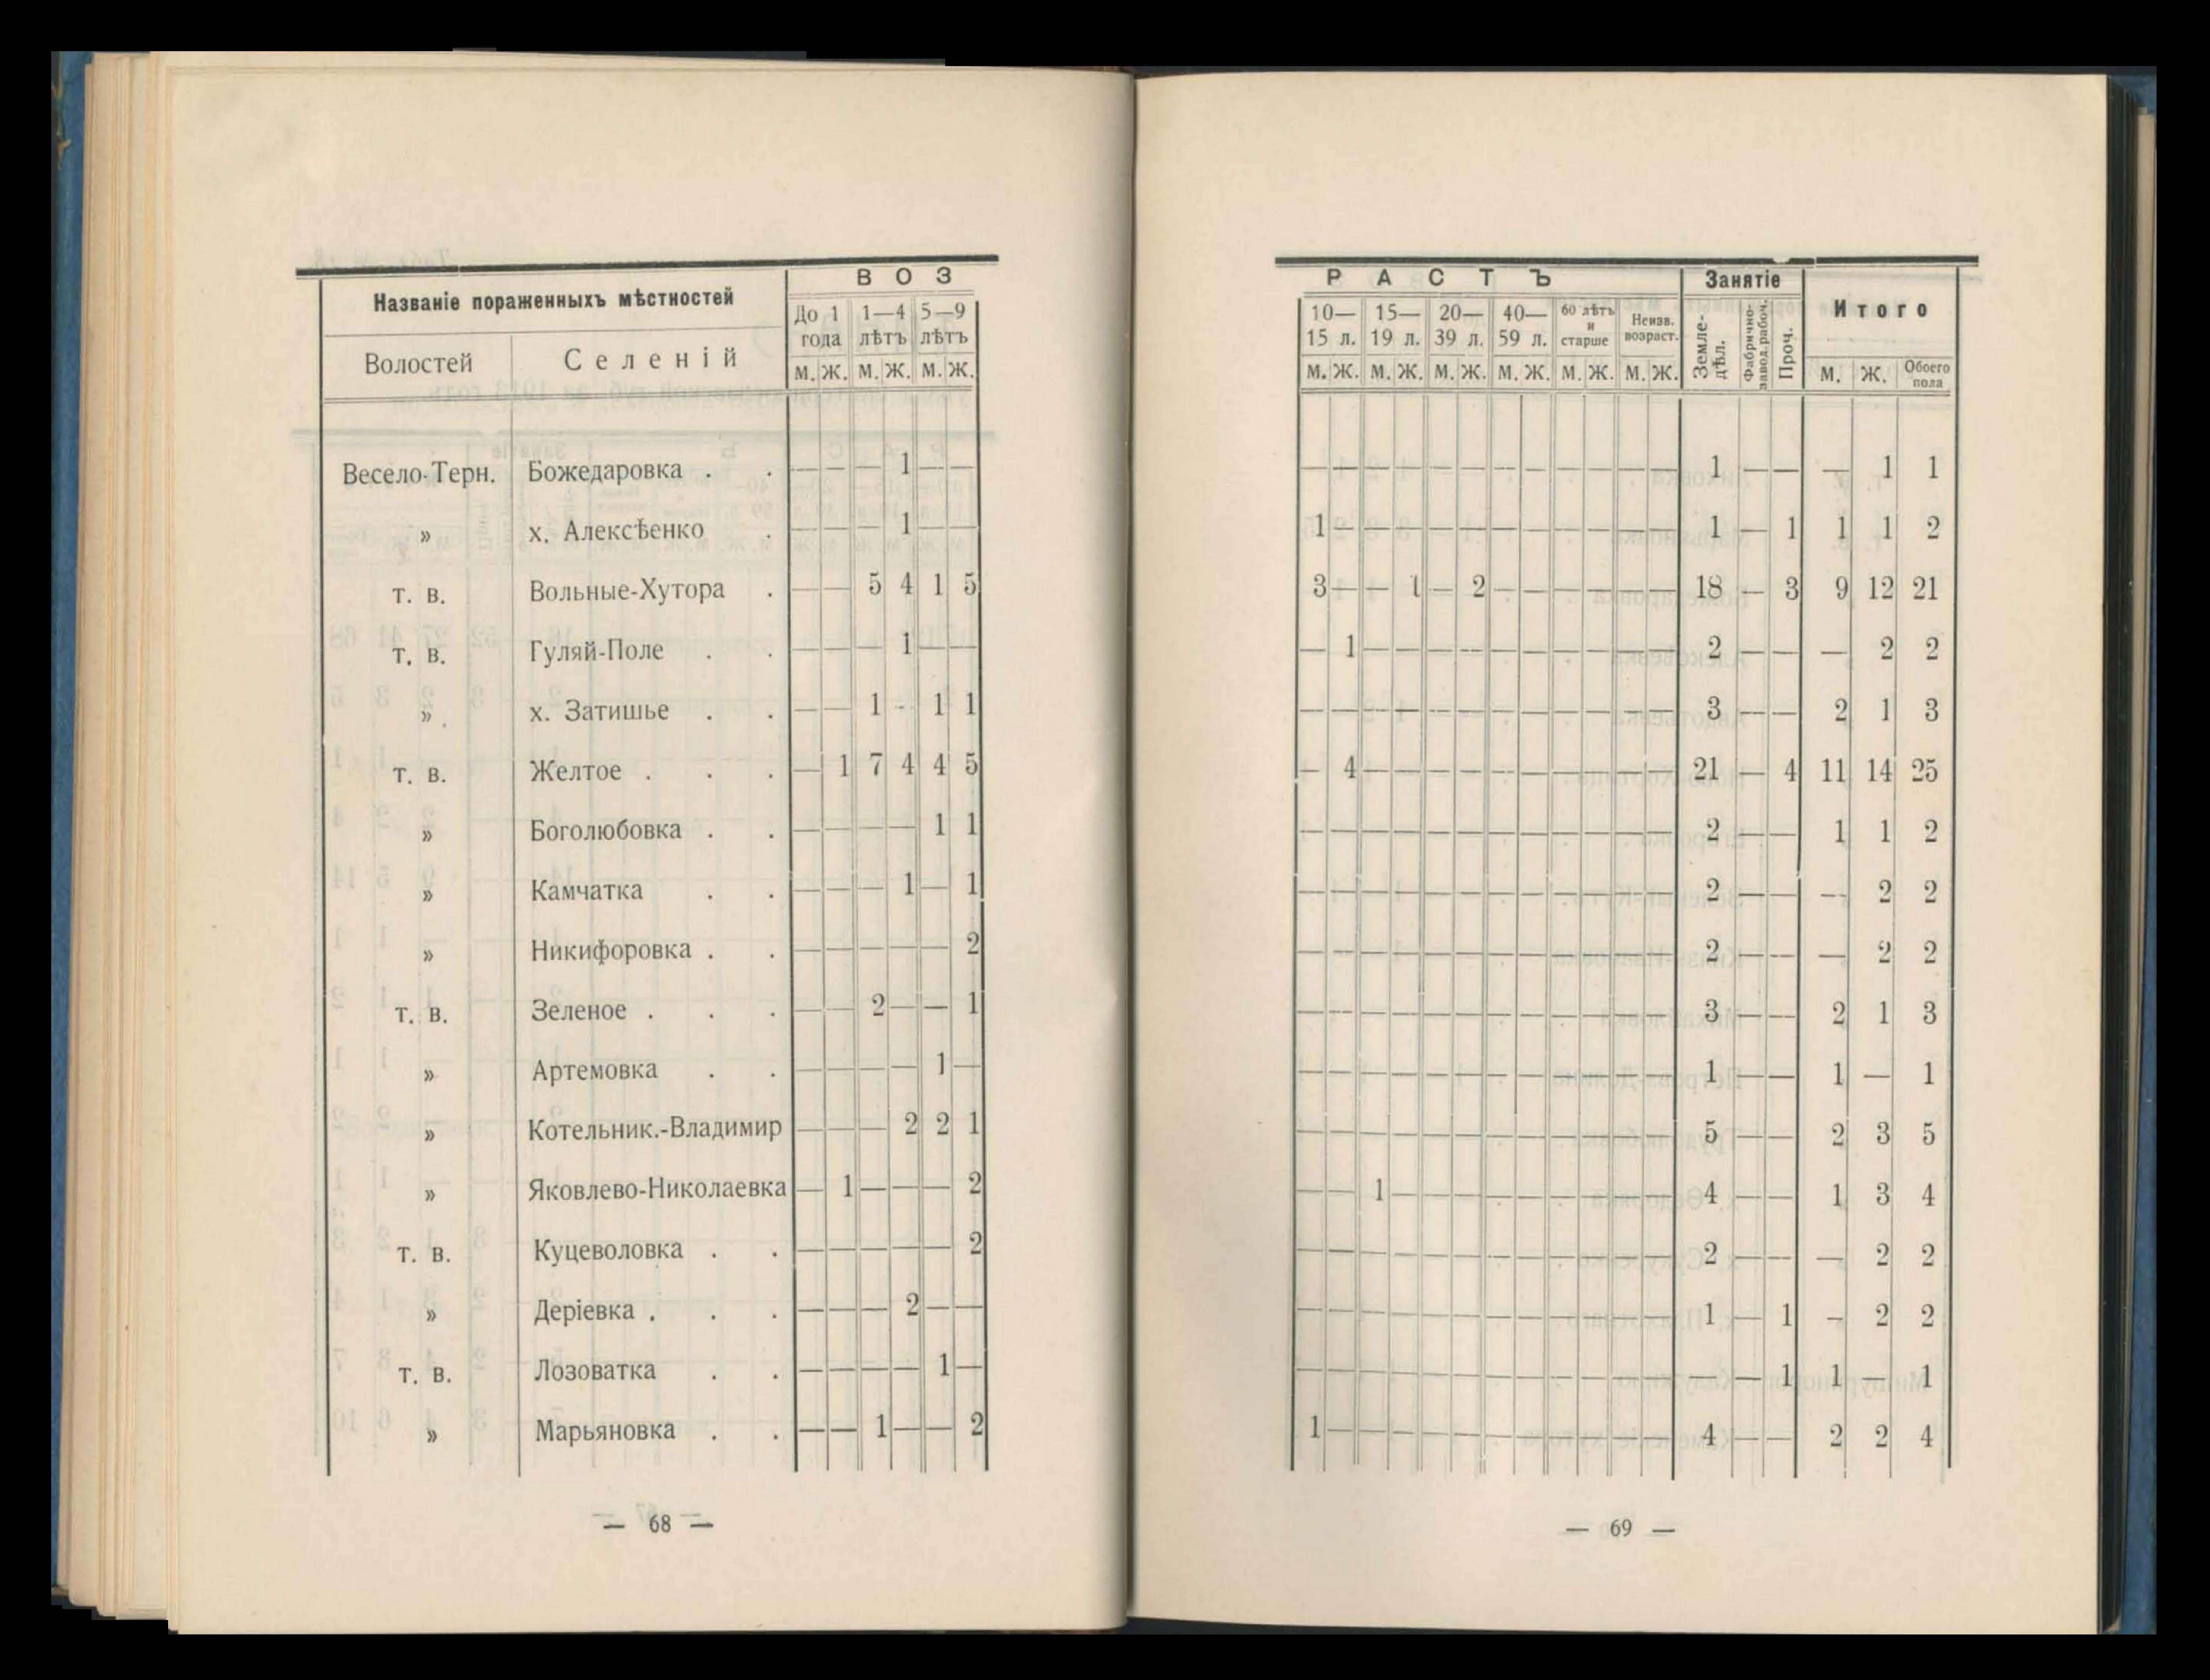 В О З
Названіе пораженныхъ мѣстностей
До 1 года 1—4 лѣтъ 5—9 лѣтъ
Волостей Селеній
м. ж. м. ж. м. ж.
Весело-Терн. Божедаровка . . — — — 1 — —
» х. Алексѣенко . — — — 1 — —
т. в. Вольные-Хутора . — — 5 4 1 5
т. в. Гуляй-Поле . . — — — 1 — —
» х. Затишье . . — — 1 - 1 1
т. в. Желтое . . . — 1 7 4 4 5
» Боголюбовка . . — — — — 1 1
» Камчатка . . — — — 1 — 1
» Никифоровка . . — — — — — 2
т. в. Зеленое . . . — — 2 — — 1
» Артемовка . . — — — — 1 —
» Котельник.-Владимир — — — 2 2 1
» Яковлево-Николаевка — 1 — — — 2
т. в. Куцеволовка . . — — — — — 2
» Деріевка . . . — — — 2 — —
т. в. Лозоватка . . — — — — 1 —
» Марьяновка . . — — 1 — — 2
— 68 —
Р А С Т Ъ Занятіе Итого
10—15 л. 15—19 л. 20—39 л. 40—59 л. 60 лѣтъ и старше Неизв. возраст. Земле-дѣл. Фабрично-завод.рабоч. Проч.
м. ж. м. ж. м. ж. м. ж. м. ж. м. ж. м. ж. Обоего пола
— — — — — — — — — — — — 1 — — — 1 1
1 — — — — — — — — — — — 1 — 1 1 1 2
3 — — 1 — 2 — — — — — — 18 — 3 9 12 21
— 1 — — — — — — — — — — 2 — — — 2 2
— — — — — — — — — — — — 3 — — 2 1 3
— 4 — — — — — — — — — — 21 — 4 11 14 25
— — — — — — — — — — — — 2 — — 1 1 2
— — — — — — — — — — — — 2 — — — 2 2
— — — — — — — — — — — — 2 — — — 2 2
— — — — — — — — — — — — 3 — — 2 1 3
— — — — — — — — — — — — 1 — — 1 — 1
— — — — — — — — — — — — 5 — — 2 3 5
— — 1 — — — — — — — — — 4 — — 1 3 4
— — — — — — — — — — — — 2 — — — 2 2
— — — — — — — — — — — — 1 — 1 — 2 2
— — — — — — — — — — — — — — 1 1 — 1
1 — — — — — — — — — — — 4 — — 2 2 4
— 69 —